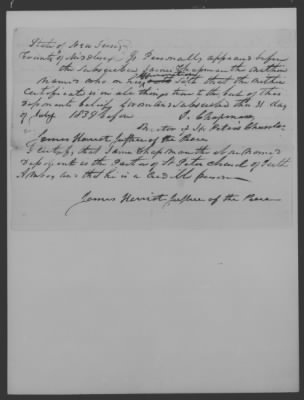 State of New Jersey
County of Middlesex Ss Personally appeared before
the Subscriber James Chapman the within
named who on his affirmation Saith that the within
Certificate is in all things true to the best of this
Deponents belief Sworn and Subscribed this 31 day
of July 1838 before J. Chapman
Rector of St Peters Church
James Harriot Justice of the Peace
I Certify that James Chapman the above named
Deponent is the Pastor of St Peter Church of Perth
Amboy and that he is a Credible person
James Harriot Justice of the Peace